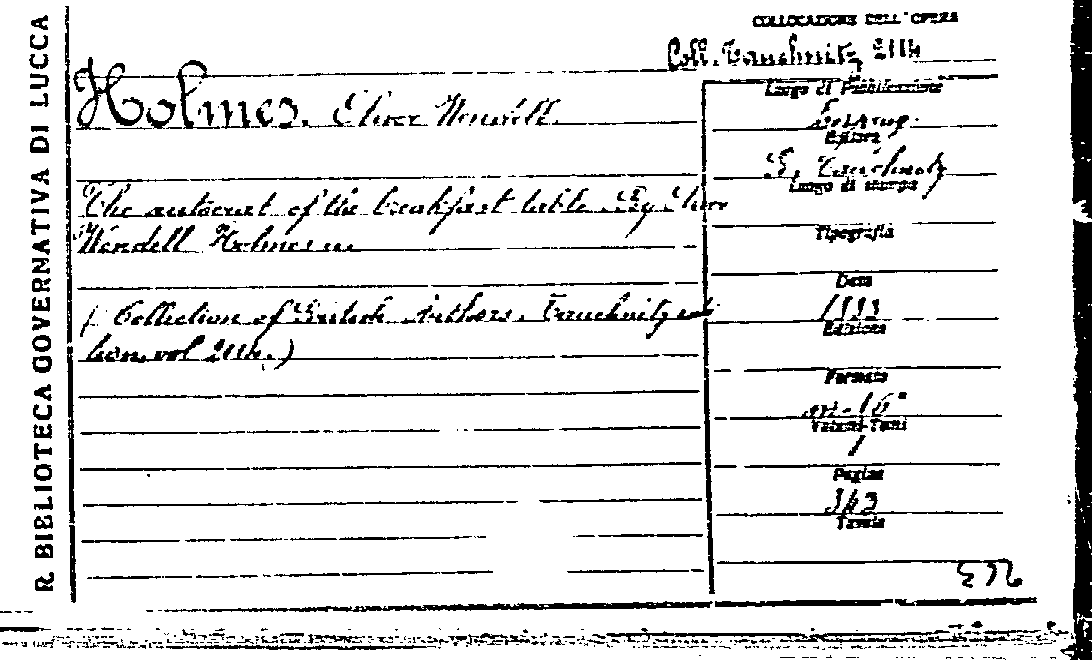 R. BIBLIOTECA GOVERNATIVA DI LUCCA
COLLOCAZIONE DELL'OPERA
Coll. Tauchnitz, 2114
Holmes. Oliver Wendell.
The autocrat of the breakfast table. By Oliver
Wendell Holmes
(Collection of British Authors. Tauchnitz edi
tion, vol 2114.)
Luogo di Pubblicazione
Editore
B. Tauchnitz
Luogo di stampa
Tipografia
Data
1883
Edizione
Formato
in-16°
Volumi-Tomi
1
Pagine
343
Tavole